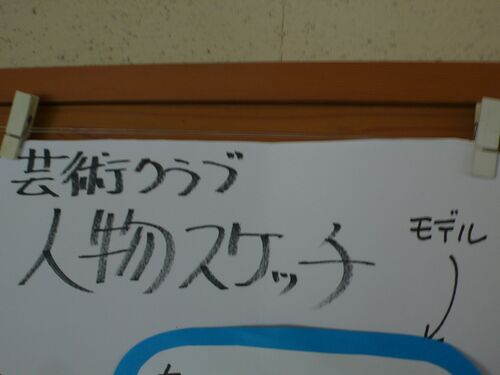 芸術クラブ
人物スケッチ
モデル